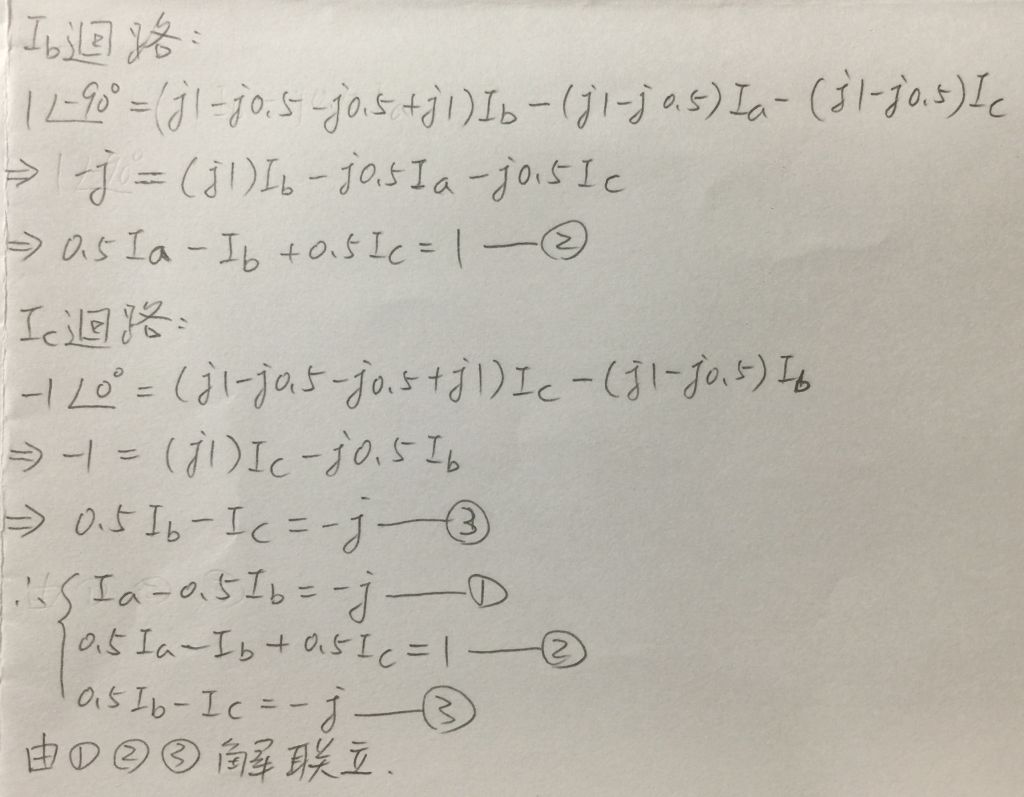 Ib迴路:
1∠-90° = (j1-j0.5-j0.5+j1)Ib-(j1-j0.5)Ia-(j1-j0.5)Ic
⇒ -j = (j1)Ib-j0.5Ia-j0.5Ic
⇒ 0.5Ia-Ib+0.5Ic=1 —②
Ic迴路:
-1∠0° = (j1-j0.5-j0.5+j1)Ic-(j1-j0.5)Ib
⇒ -1 = (j1)Ic-j0.5Ib
⇒ 0.5Ib-Ic=-j —③
∴{ Ia-0.5Ib=-j —①
0.5Ia-Ib+0.5Ic=1 —②
0.5Ib-Ic=-j —③
由①②③解联立.